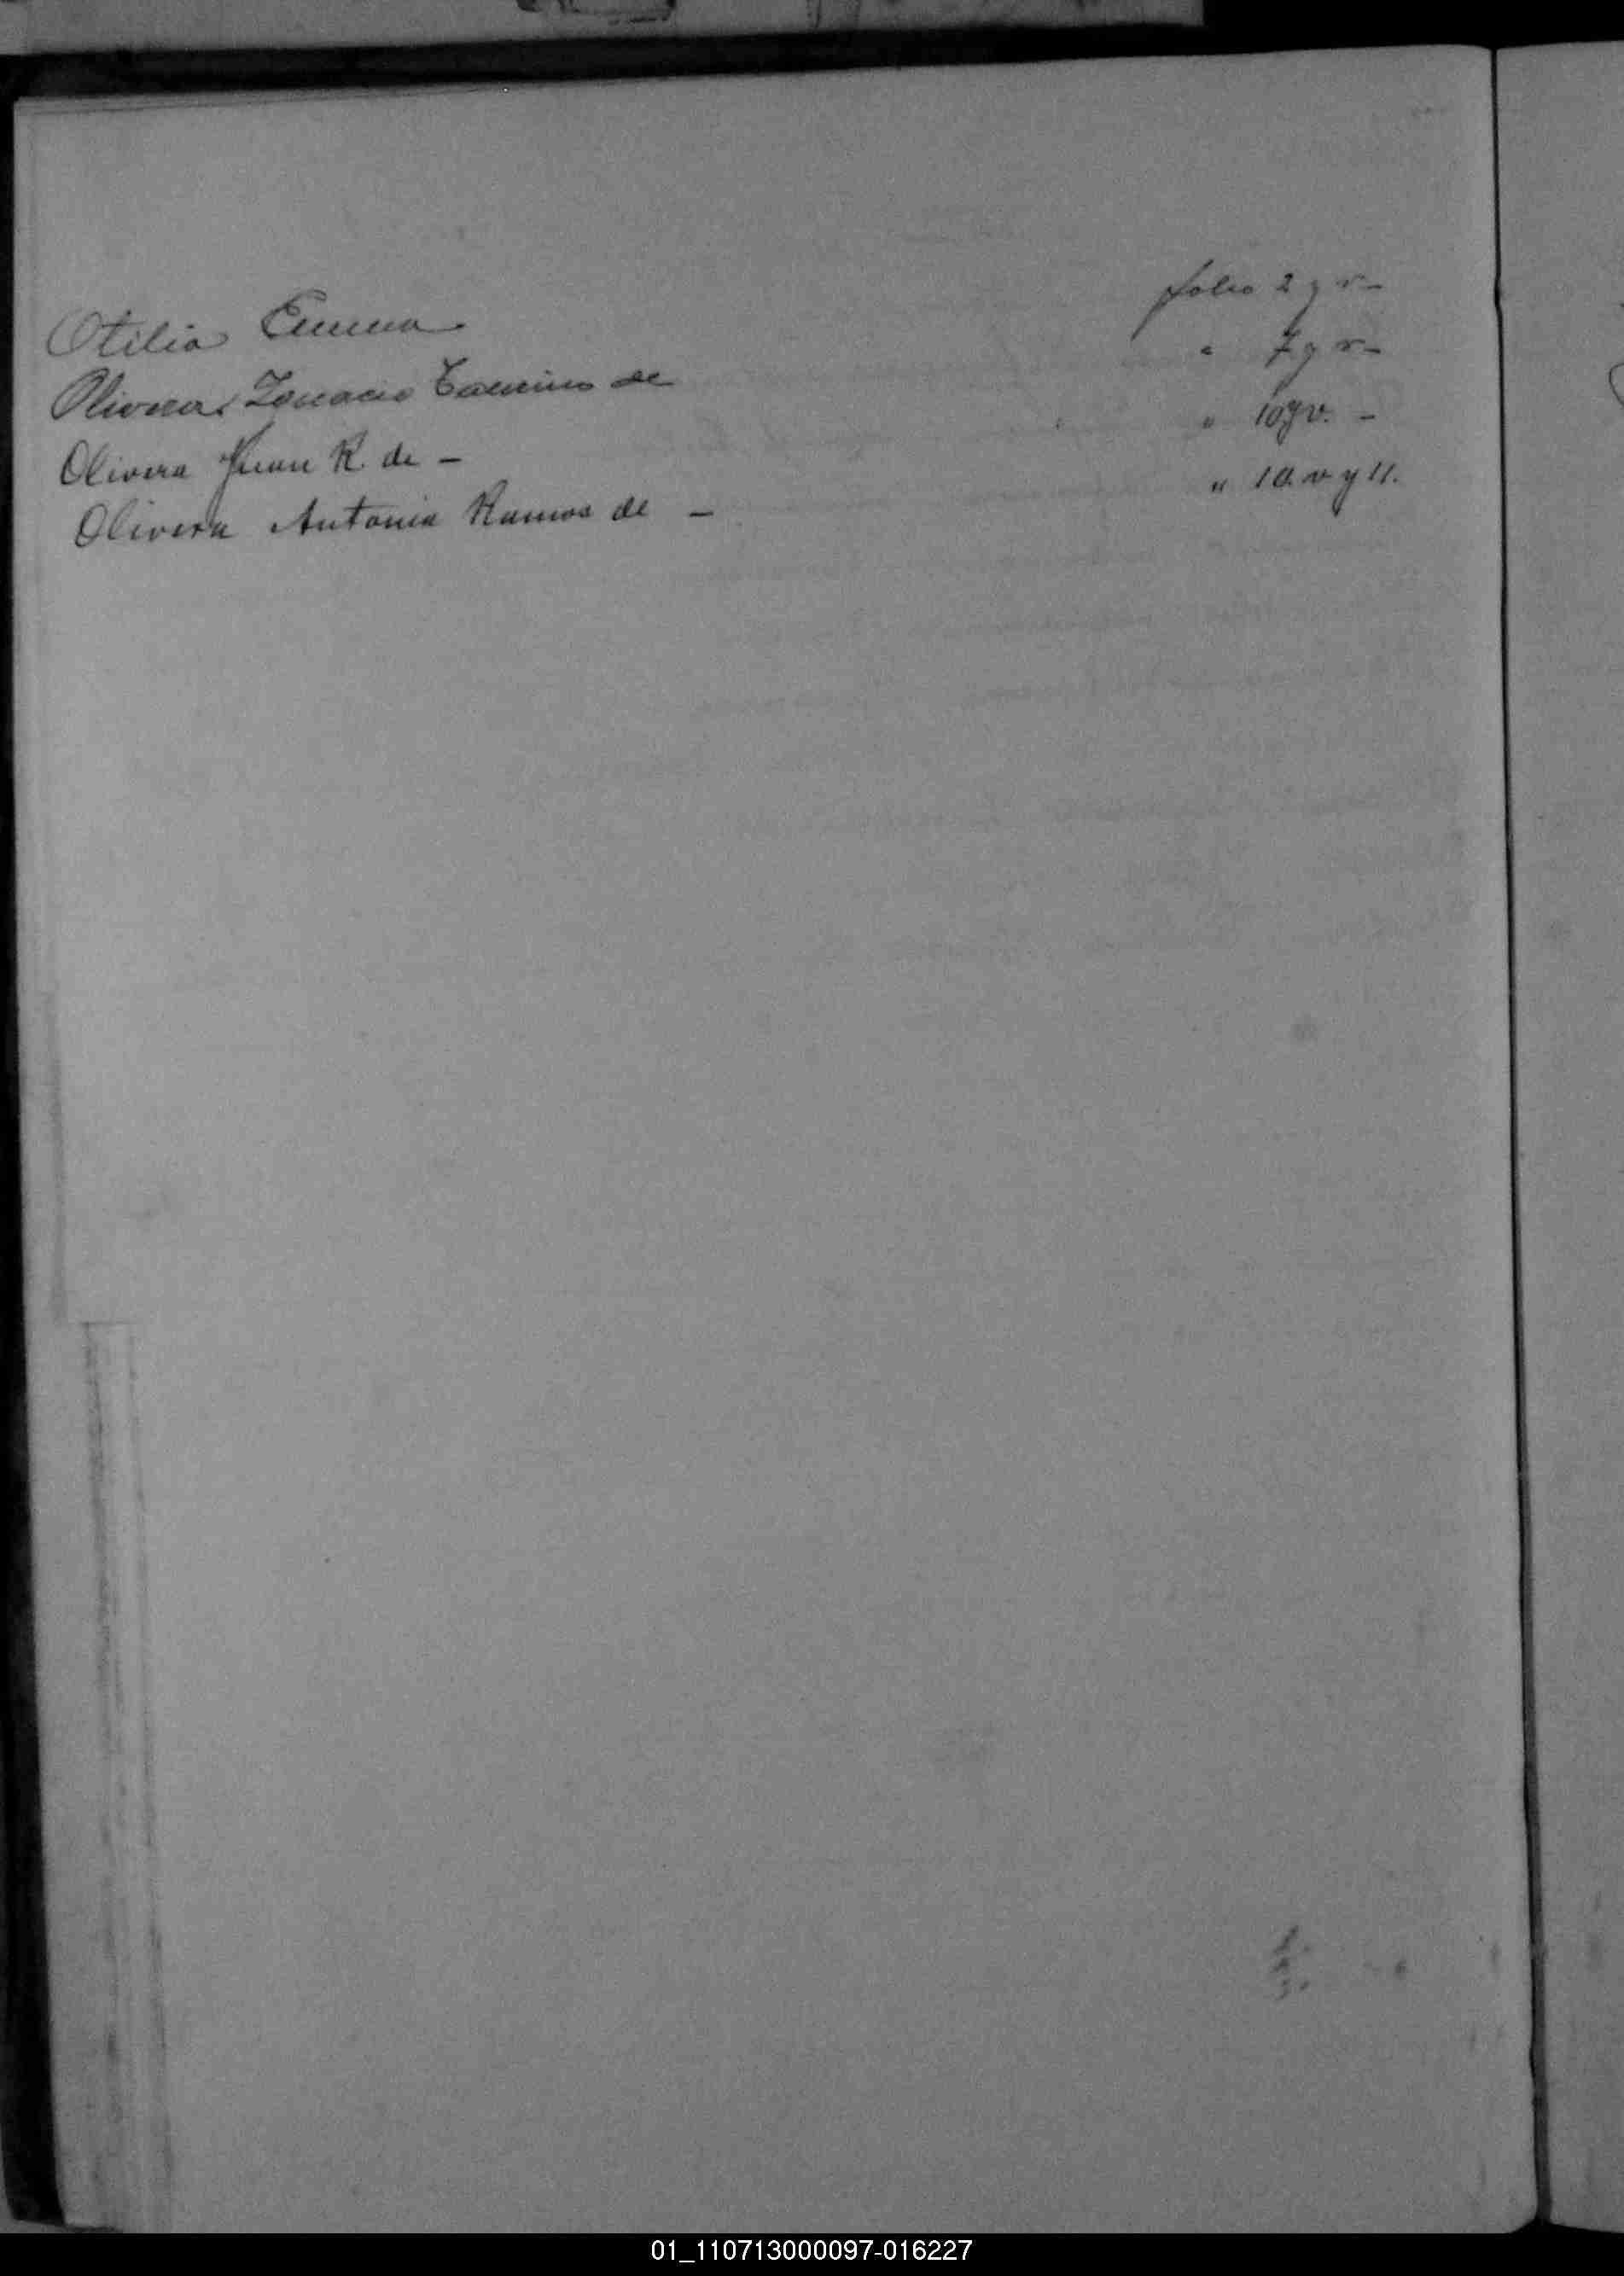 Otilia Emma folio 2 y v-
Olivera Ignacio de " 7 y v-
Olivera Juan R. de - " 10 y v. -
Olivera Antonia Ramos de - " 10. v y 11.
01_110713000097-016227